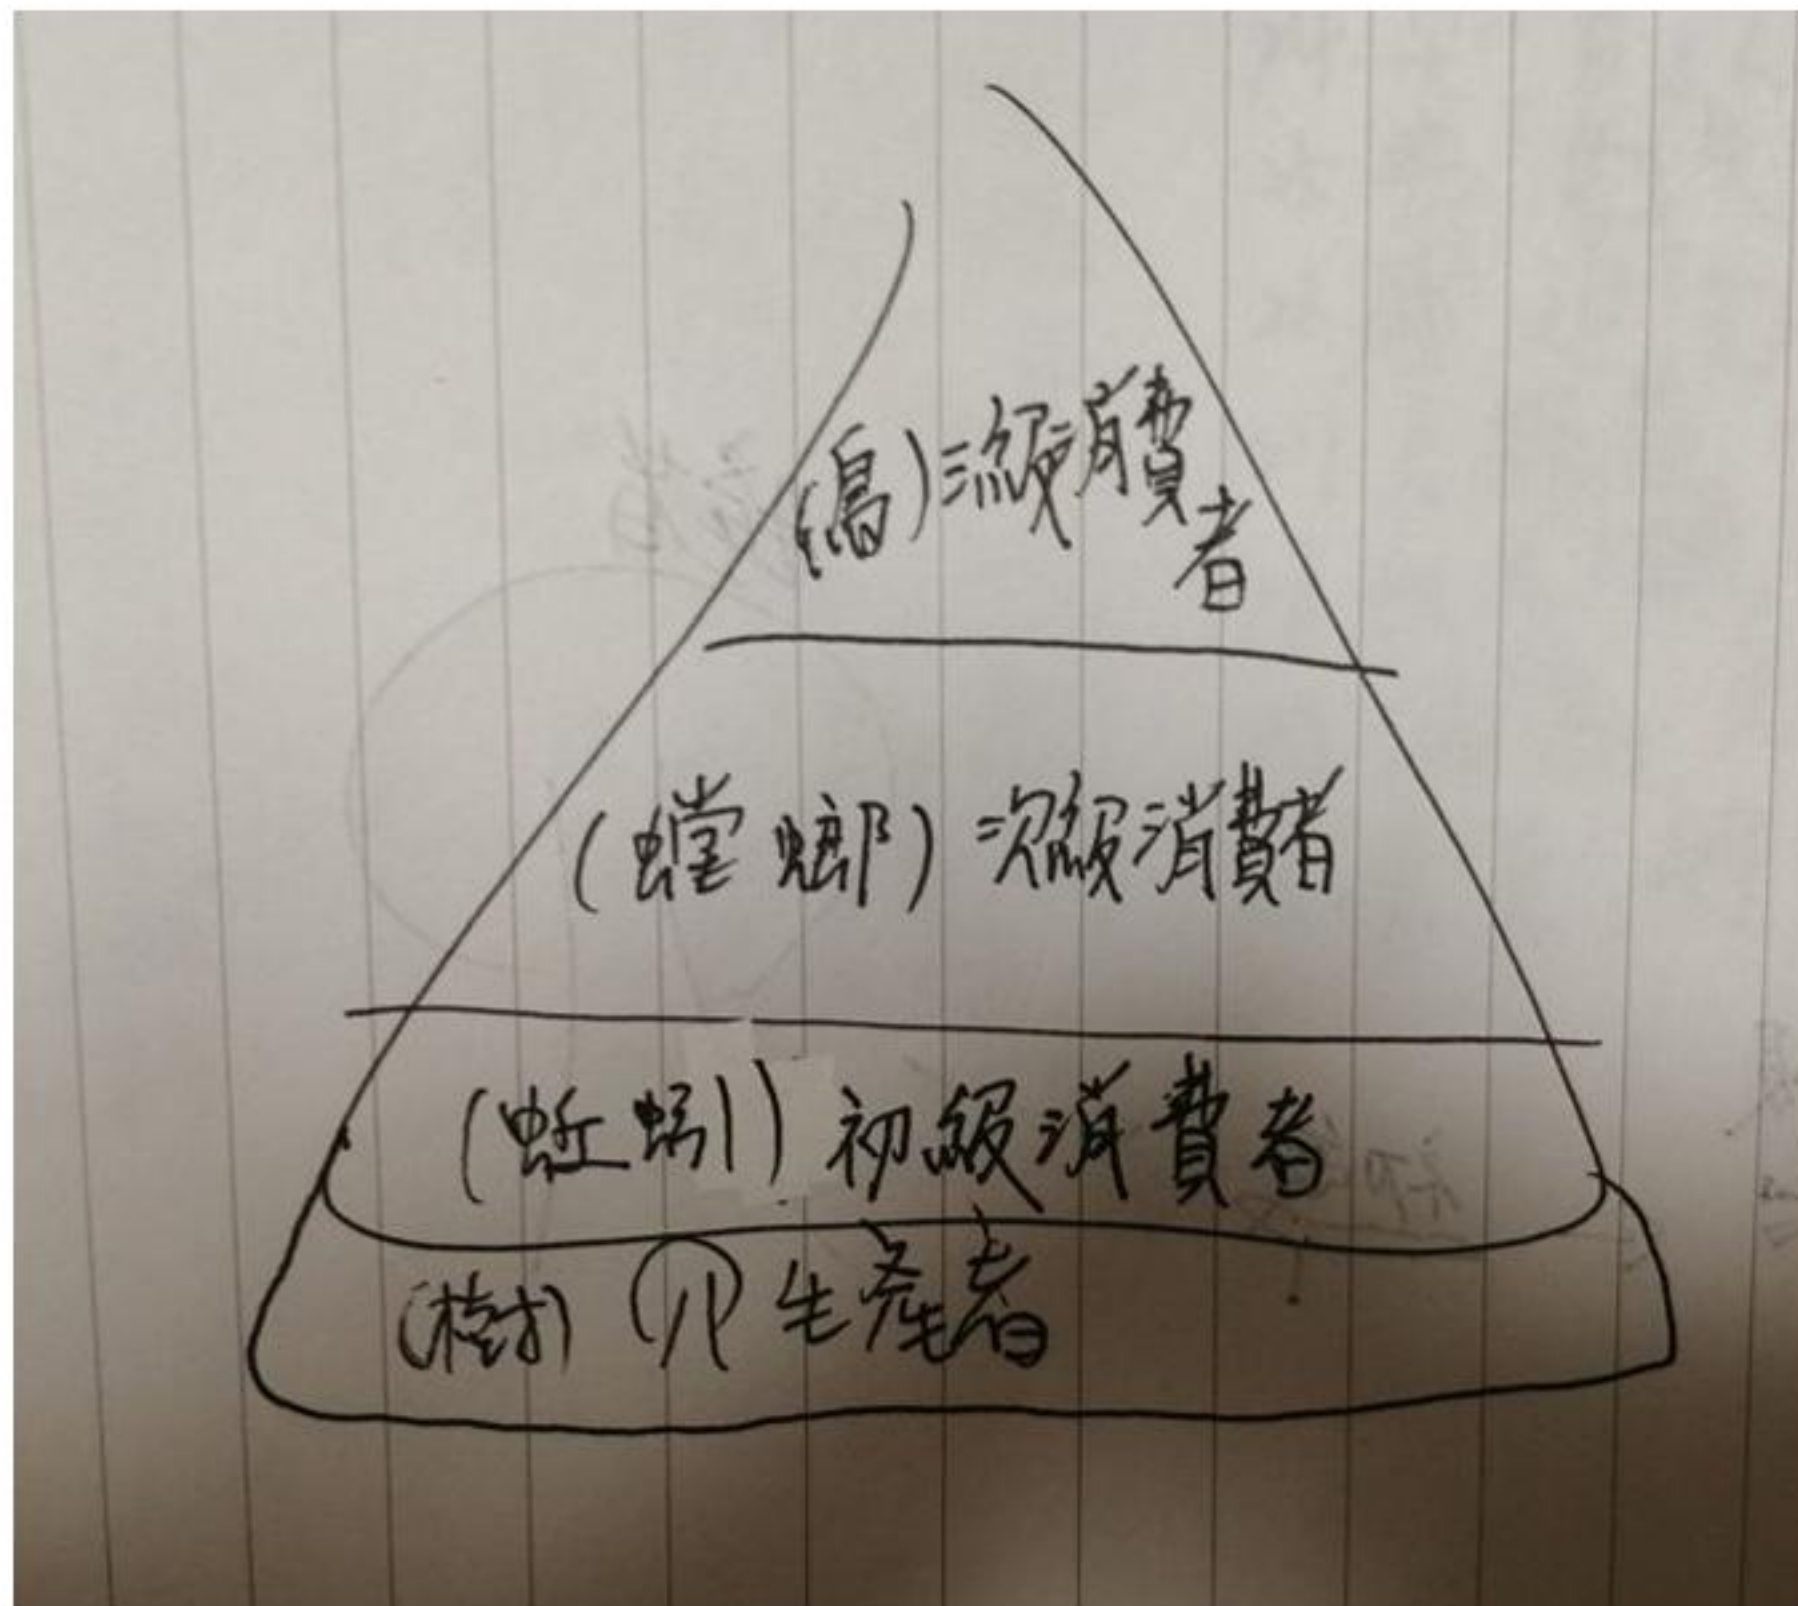 (鳥)三級消費
者
(螳螂)次級消費者
(蚯蚓)初級消費者
(樹) 生產者